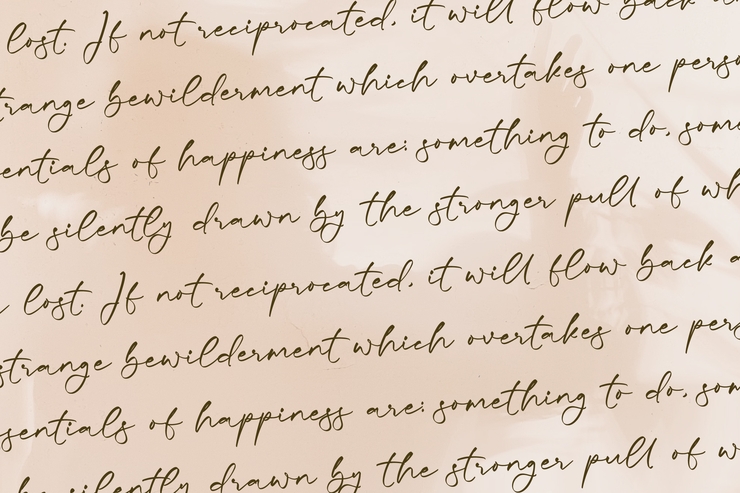 lost. If not reciprocated, it will flow back
strange bewilderment which overtakes one perso
entials of happiness are: something to do, som
be silently drawn by the stronger pull of wh
lost. If not reciprocated, it will flow back a
strange bewilderment which overtakes one pers
sentials of happiness are: something to do, som
silently drawn by the stronger pull of w